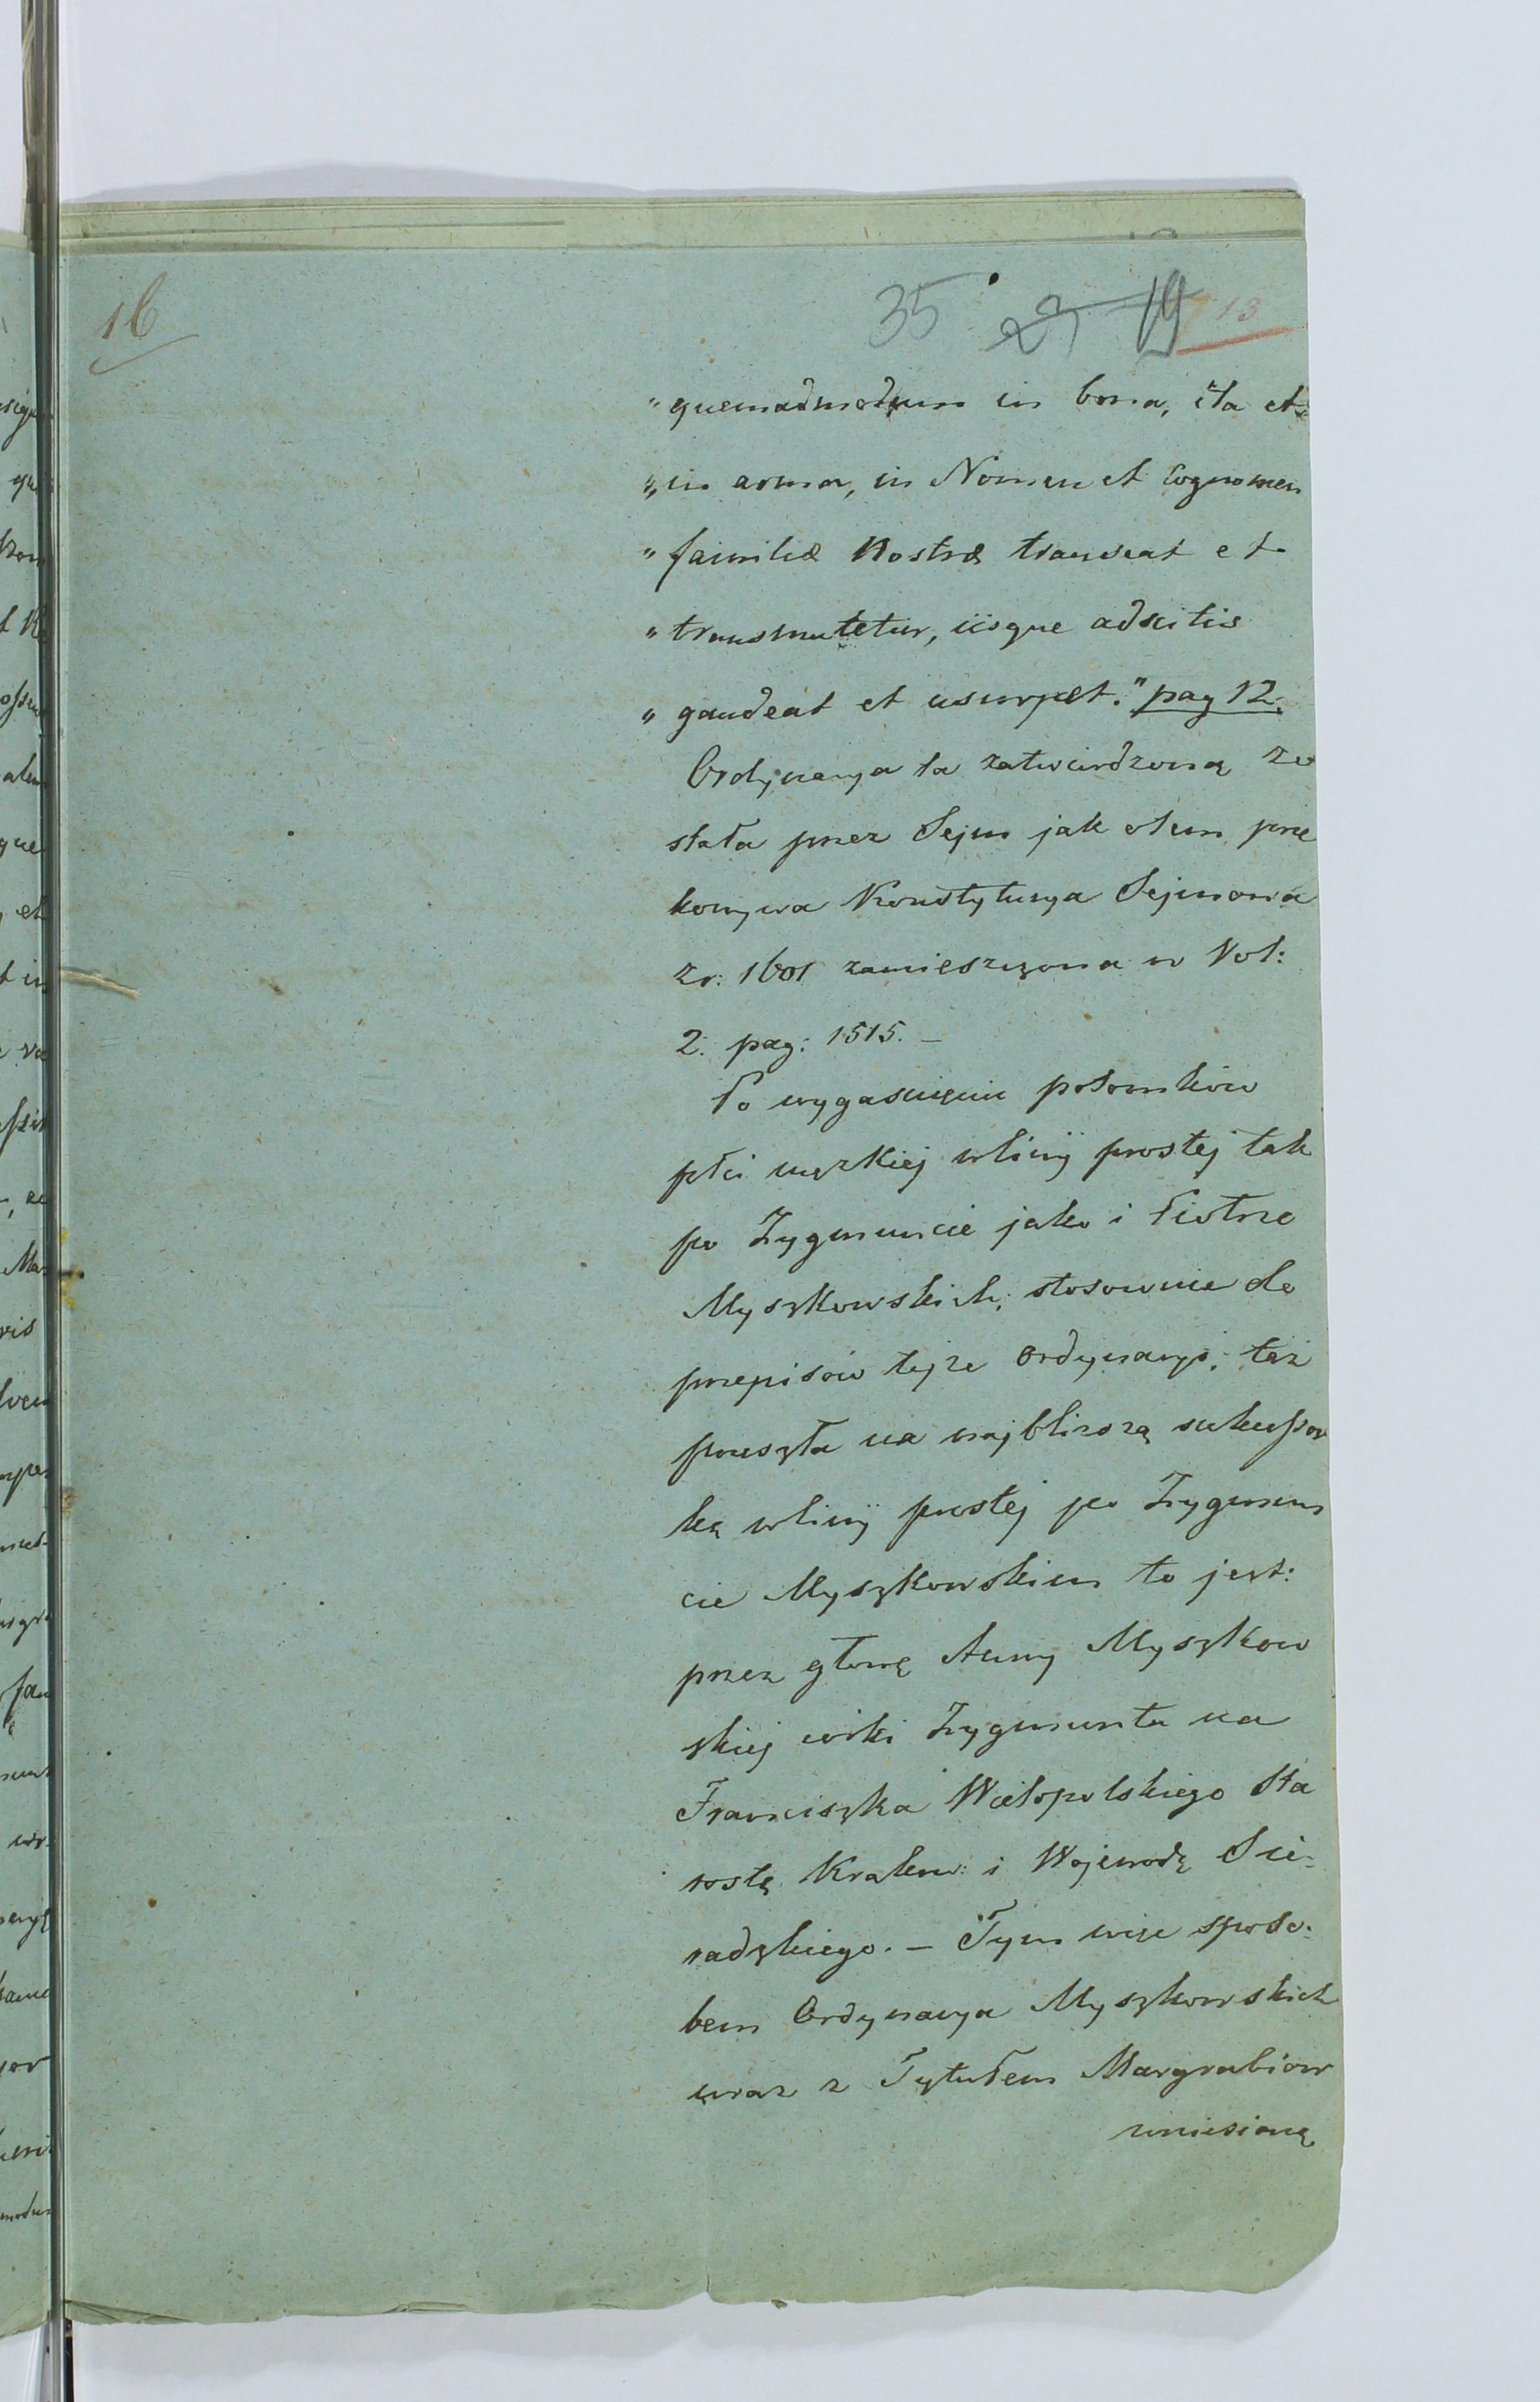 16
35 27 19 13
„quemadmodum in bona, ita et
„in arma, in Nomen et Cognomen
„familiæ Nostræ transeat et
„transmutetur, iisque adscitis
„gaudeat et usurpet." pag 12.
Ordynacya ta zatwierdzoną zo
stała przez Sejm jak o tem prze
konywa Konstytucya Sejmowa
z r: 1601 zamieszczona w Vol:
2. pag: 1515. –
Po wygaśnięciu potomków
płci męzkiej w linij prostej tak
po Zygmuncie jako i Piotrze
Myszkowskich, stosownie do
przepisów tejże Ordynacyi, taż
przeszła na najbliższą sukcessor
kę w linij prostej po Zygmun
cie Myszkowskim to jest:
przez głowę Anny Myszkow
skiej córki Zygmunta na
Franciszka Wielopolskiego Sta
rostę Krakow: i Wojewodę Sie-
radzkiego. – Tym więc sposo-
bem Ordynacya Myszkowskich
wraz z Tytułem Margrabiow
wniesioną